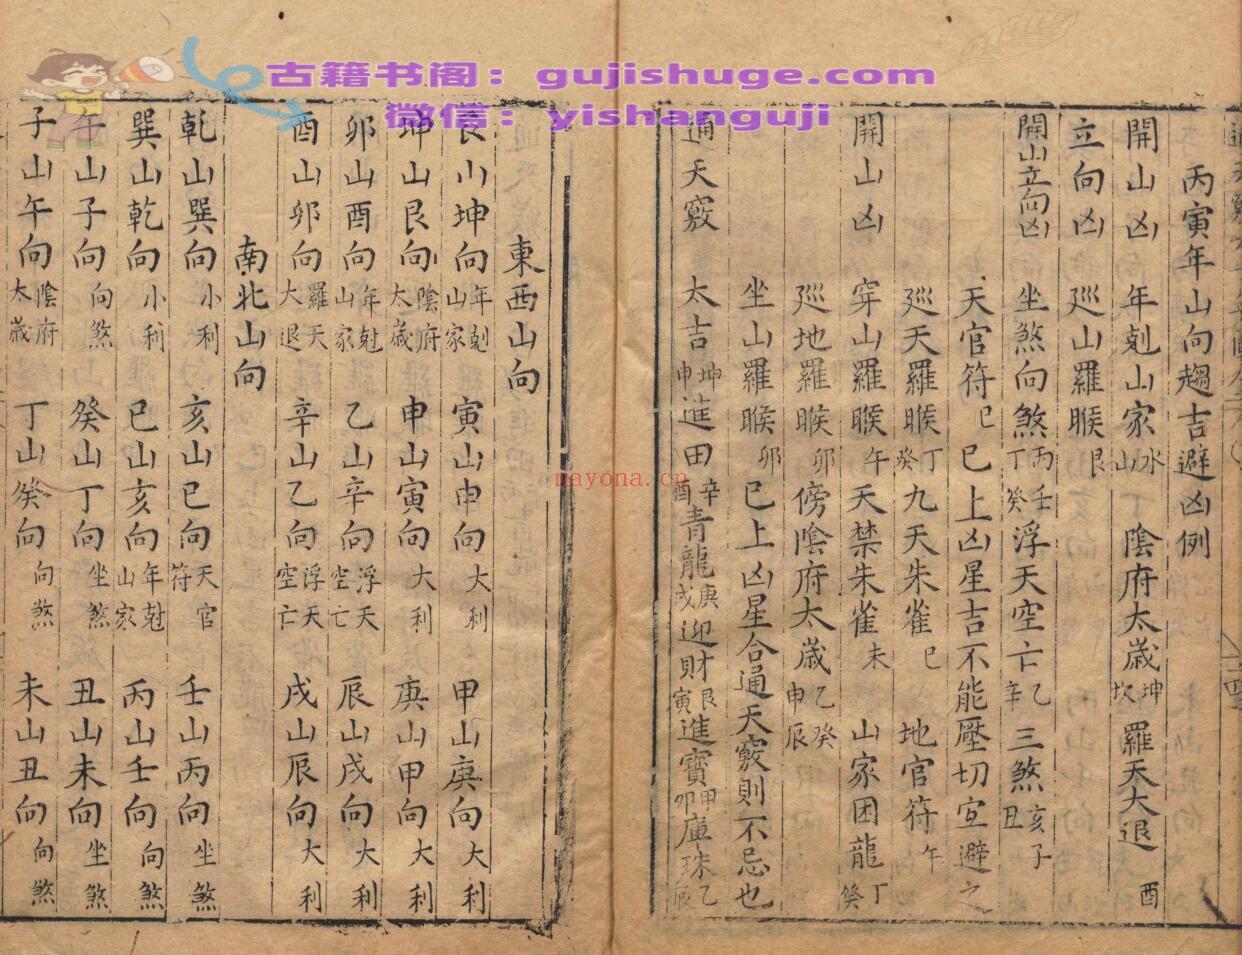 古籍书阁：gujishuge.com
微信：yishanguji
nayona.cn
丙寅年山向趨吉避凶例
開山凶 年剋山家水山 陰府太歲坤坎 羅天大退酉
立向凶 廵山羅睺艮
開山立向凶 坐煞向煞丙壬丁癸 浮天空亡乙辛 三煞亥子丑
天官符巳 已上凶星吉不能壓切宜避之
廵天羅睺丁癸 九天朱雀巳 地官符午
開山凶 穿山羅睺午 天禁朱雀未 山家困龍丁癸
廵地羅睺卯 傍陰府太歲乙癸申辰
坐山羅睺卯 已上凶星合通天竅則不忌也
通天竅 太吉坤申 進田辛酉 青龍庚戌 迎財艮寅 進寶甲卯 庫珠乙辰
東西山向
艮山坤向年剋山家 寅山申向大利 甲山庚向大利
坤山艮向陰府太歲 申山寅向大利 庚山甲向大利
卯山酉向年尅山家 乙山辛向浮天空亡 辰山戌向大利
酉山卯向羅天大退 辛山乙向浮天空亡 戌山辰向大利
南北山向
乾山巽向小利 亥山巳向天官符 壬山丙向坐煞
巽山乾向小利 巳山亥向年尅山家 丙山壬向向煞
午山子向向煞 癸山丁向坐煞 丑山未向坐煞
子山午向陰府太歲 丁山癸向向煞 未山丑向向煞